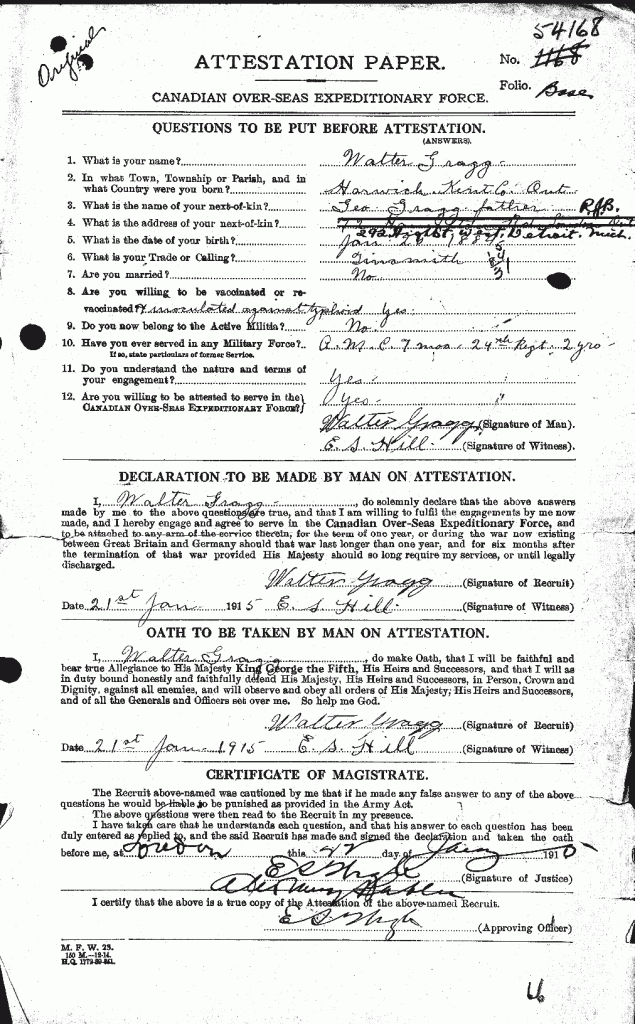 54168
Original
ATTESTATION PAPER.
No. 1168
Folio. Base
CANADIAN OVER-SEAS EXPEDITIONARY FORCE.
QUESTIONS TO BE PUT BEFORE ATTESTATION.
(ANSWERS).
1. What is your name? Walter Gragg
2. In what Town, Township or Parish, and in
what Country were you born? Harwich Kent Co. Ont
3. What is the name of your next-of-kin? Geo Gragg father R.J.B.
4. What is the address of your next-of-kin?
Detroit. Mich.
5. What is the date of your birth? Jan
6. What is your Trade or Calling? Tinsmith
7. Are you married? No
8. Are you willing to be vaccinated or re-
vaccinated? & inoculated against typhoid Yes.
9. Do you now belong to the Active Militia? No.
10. Have you ever served in any Military Force? A. M. C. 7 mos - 24th Regt - 2 yrs -
If so, state particulars of former Service.
11. Do you understand the nature and terms of
your engagement? Yes.
12. Are you willing to be attested to serve in the
CANADIAN OVER-SEAS EXPEDITIONARY FORCE? Yes. "
Walter Gragg (Signature of Man).
E. S. Hill (Signature of Witness).
DECLARATION TO BE MADE BY MAN ON ATTESTATION.
I, Walter Gragg, do solemnly declare that the above answers
made by me to the above questions are true, and that I am willing to fulfil the engagements by me now
made, and I hereby engage and agree to serve in the Canadian Over-Seas Expeditionary Force, and
to be attached to any arm of the service therein, for the term of one year, or during the war now existing
between Great Britain and Germany should that war last longer than one year, and for six months after
the termination of that war provided His Majesty should so long require my services, or until legally
discharged.
Walter Gragg (Signature of Recruit)
Date 21st Jan 1915 E. S. Hill (Signature of Witness)
OATH TO BE TAKEN BY MAN ON ATTESTATION.
I, Walter Gragg, do make Oath, that I will be faithful and
bear true Allegiance to His Majesty King George the Fifth, His Heirs and Successors, and that I will as
in duty bound honestly and faithfully defend His Majesty, His Heirs and Successors, in Person, Crown and
Dignity, against all enemies, and will observe and obey all orders of His Majesty, His Heirs and Successors,
and of all the Generals and Officers set over me. So help me God.
Walter Gragg (Signature of Recruit)
Date 21st Jan 1915 E. S. Hill (Signature of Witness)
CERTIFICATE OF MAGISTRATE.
The Recruit above-named was cautioned by me that if he made any false answer to any of the above
questions he would be liable to be punished as provided in the Army Act.
The above questions were then read to the Recruit in my presence.
I have taken care that he understands each question, and that his answer to each question has been
duly entered as replied to, and the said Recruit has made and signed the declaration and taken the oath
before me, at London this day of 191
(Signature of Justice)
I certify that the above is a true copy of the Attestation of the above-named Recruit.
(Approving Officer)
M. F. W. 23.
150 M.-12-14.
H.Q. 1772-39-841.